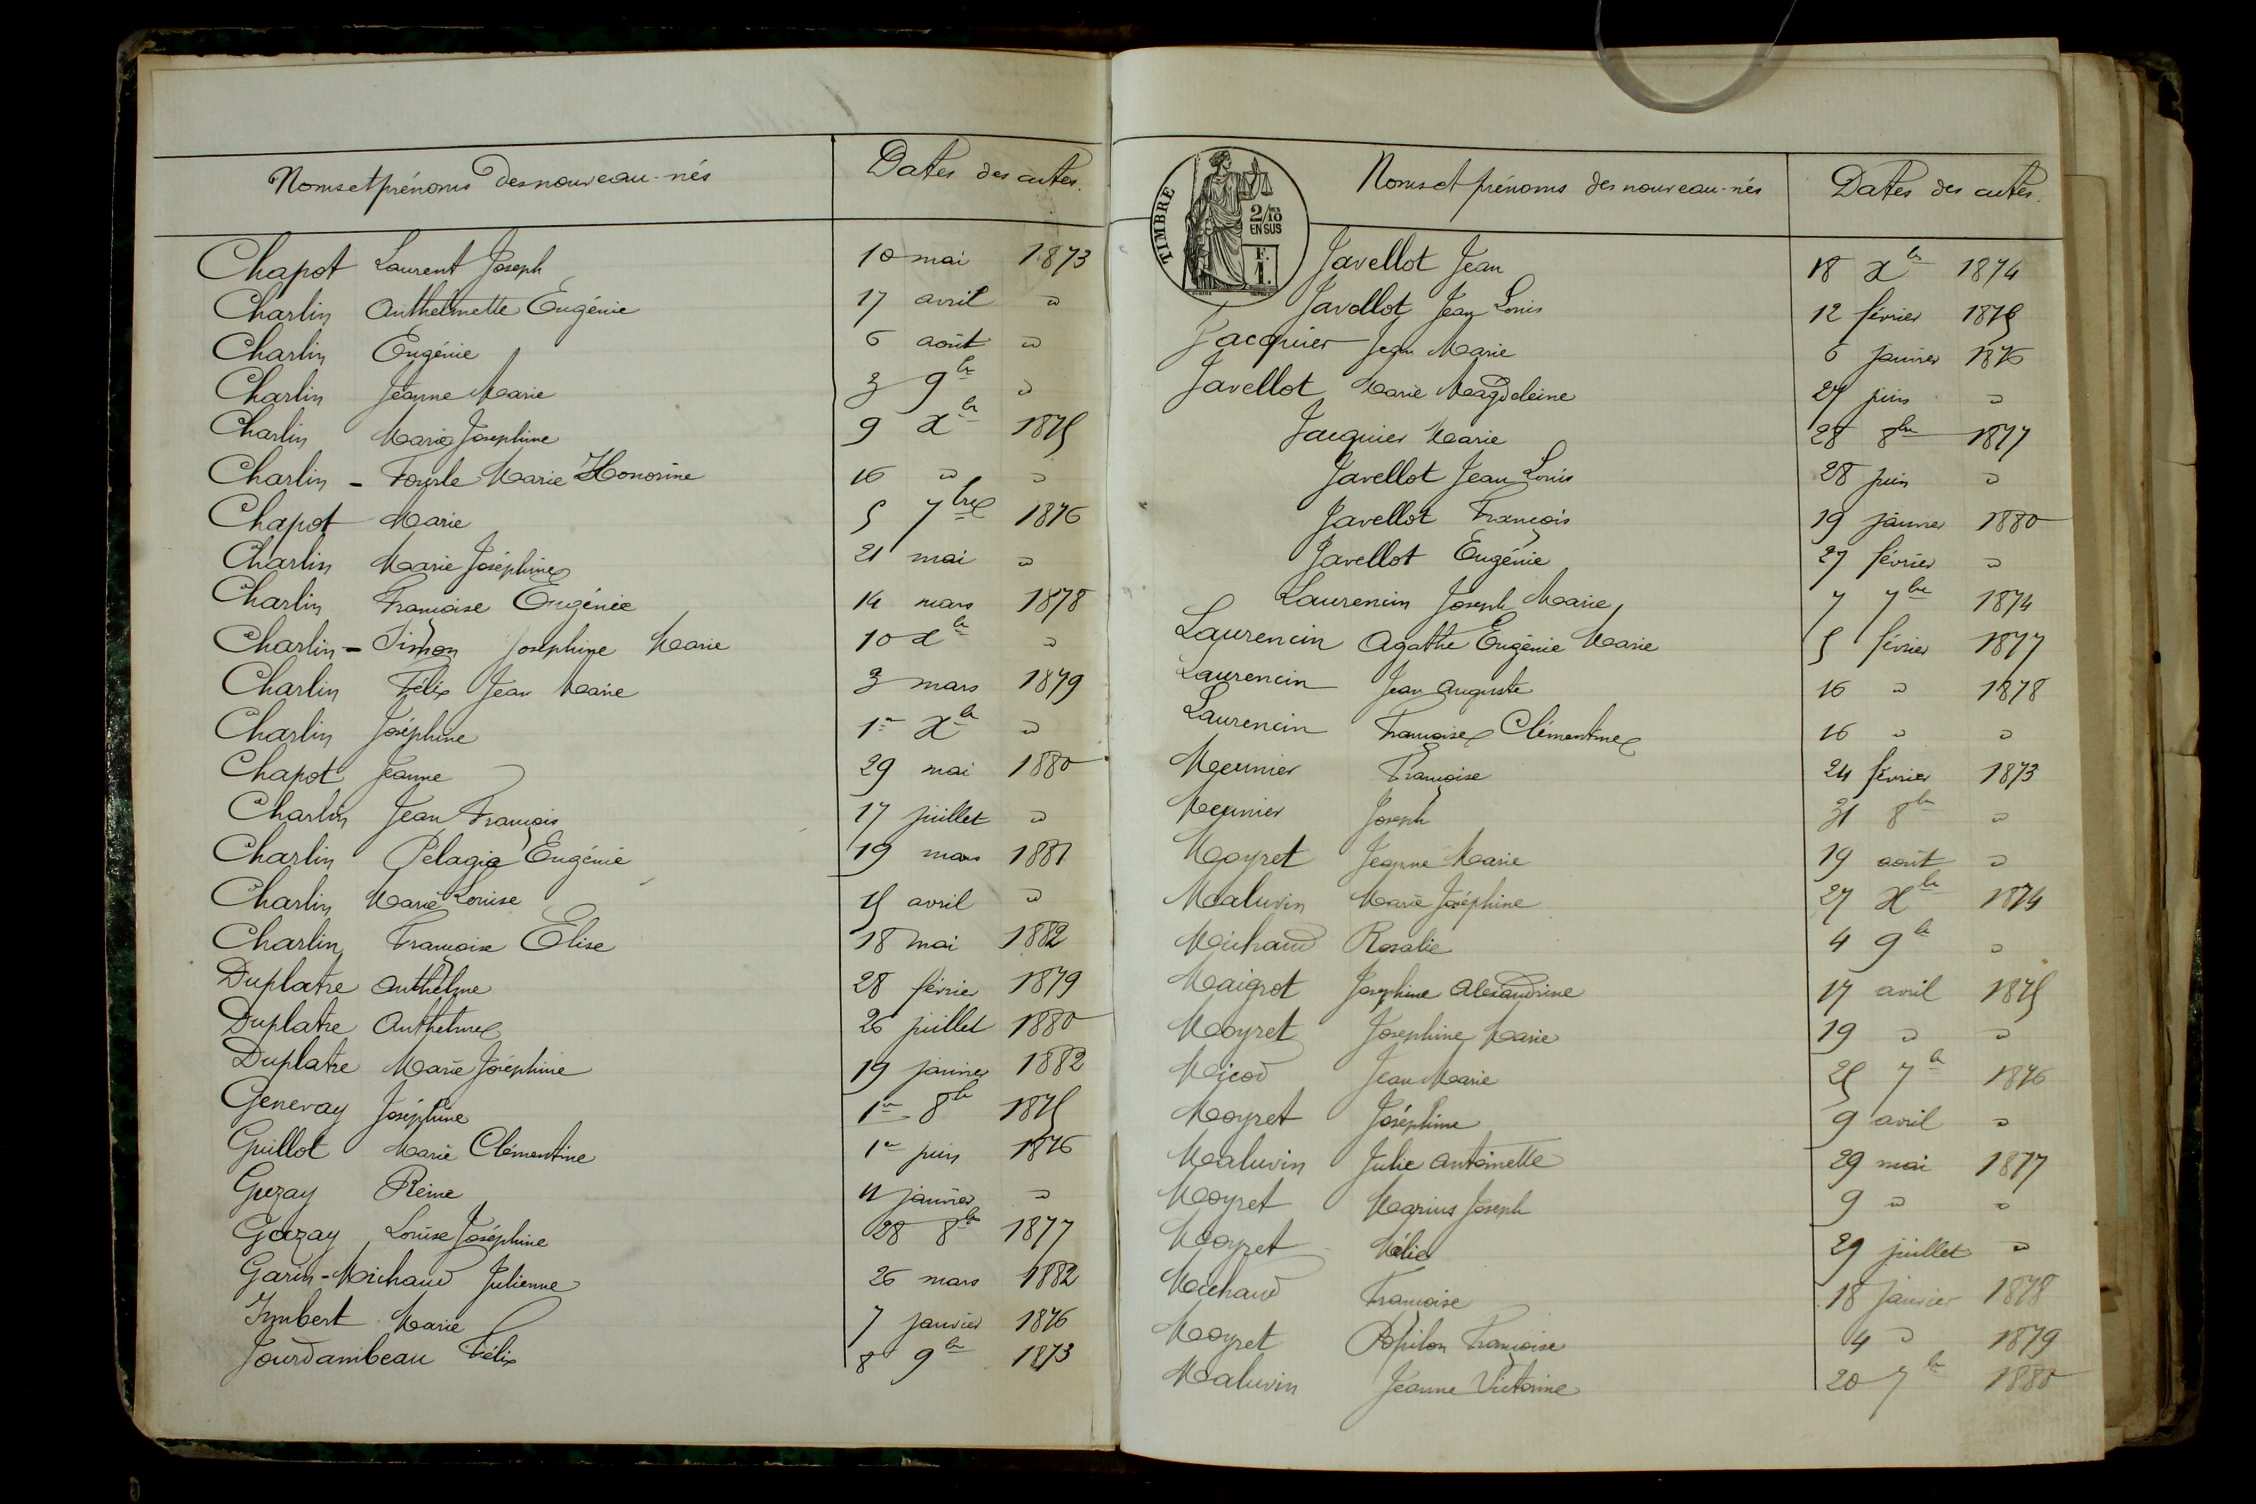 Noms et prénoms des nouveau-nés Dates des actes.
Chapot Laurent Joseph 10 mai 1873
Charlin Anthelmette Eugénie 17 avril "
Charlin Eugénie 6 août "
Charlin Jeanne Marie 3 9bre "
Charlin Marie Josephine 9 Xbre 1875
Charlin - Fayole Marie Honorine 16 " "
Chapot Marie 5 7bre 1876
Charlin Marie Joséphine 21 mai "
Charlin Françoise Eugénie 14 mars 1878
Charlin - Simon Joséphine Marie 10 Xbre "
Charlin Félix Jean Marie 3 mars 1879
Charlin Joséphine 1er Xbre "
Chapot Jeanne 29 mai 1880
Charlin Jean François 17 juillet "
Charlin Pélagie Eugénie 19 mars 1881
Charlin Marie Louise 15 avril "
Charlin Françoise Elise 18 mai 1882
Duplatre Anthelme 28 février 1879
Duplatre Anthelme 26 juillet 1880
Duplatre Marie Joséphine 19 janvier 1882
Genevay Joséphine 1er 8bre 1875
Guillot Marie Clémentine 1er juin 1876
Guzay Reine 11 janvier "
Gozay Louise Joséphine 28 8bre 1877
Garin-Michaud Julienne 26 mars 1882
Imbert Marie 7 janvier 1876
Jourdambeau Félix 8 9bre 1873
TIMBRE
2/10 EN SUS
F. 1.
Noms et prénoms des nouveau-nés Dates des actes.
Javellot Jean 18 Xbre 1874
Javellot Jean Louis 12 février 1875
Jacquier Jean Marie 6 janvier 1876
Javellot Marie Magdeleine 27 juin "
Jacquier Marie 28 8bre 1877
Javellot Jean Louis 28 juin "
Javellot François 19 janvier 1880
Javellot Eugénie 27 février "
Laurencin Joseph Marie 7 7bre 1874
Laurencin Agathe Eugénie Marie 5 février 1877
Laurencin Jean Auguste 16 " 1878
Laurencin Françoise Clémentine 16 " "
Meunier Françoise 24 février 1873
Meunier Joseph 31 8bre "
Moyret Jeanne Marie 19 août "
Maluvin Marie Joséphine 27 Xbre 1874
Michaud Rosalie 4 9bre "
Maigrot Joséphine Alexandrine 17 avril 1875
Moyret Josephine Marie 19 " "
Micod Jean Marie 25 7bre 1876
Moyret Joséphine 9 avril "
Maluvin Julie Antoinette 29 mai 1877
Moyret Marius Joseph 9 " "
Moyret Mélie 29 juillet "
Michaud Françoise 18 janvier 1878
Moyret Françoise 4 " 1879
Maluvin Jeanne Victorine 20 7bre 1880